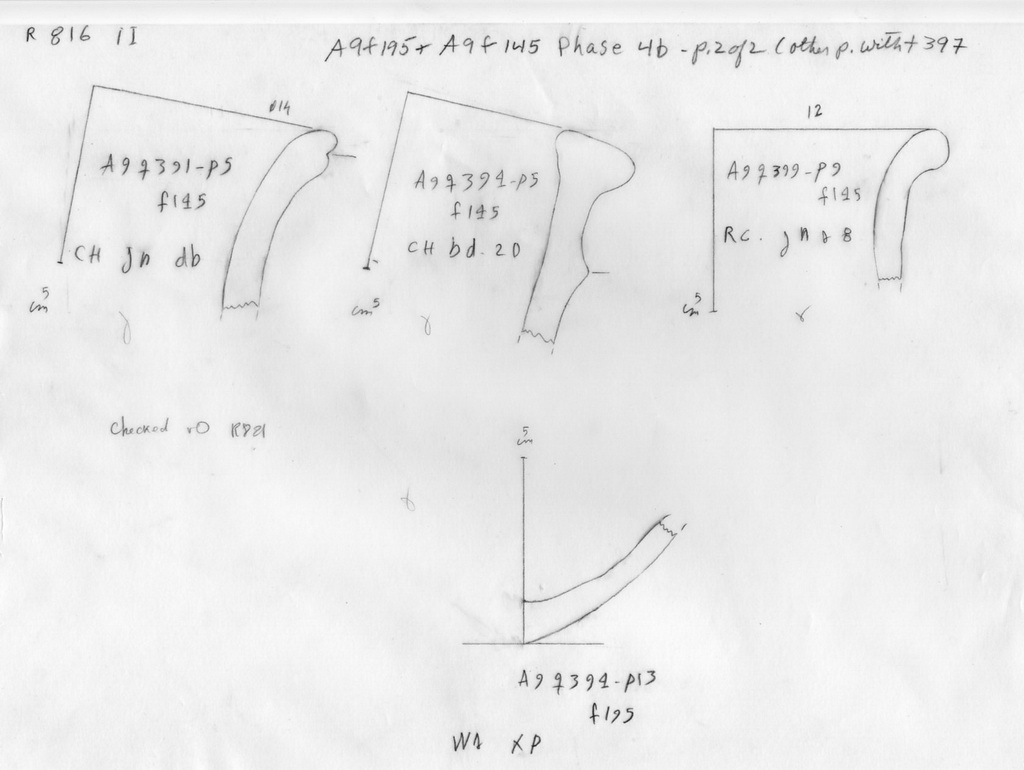 R 816 iI
A9f195 + A9f145 Phase 4b - p.2of2 (other p. with + 397
ø14
12
A9q391-p5
f145
CH jn db
5
cm
A9q394-p5
f145
CH bd. 20
5
cm
A9q399-p9
f145
RC. jn
5
cm
Checked
5
cm
A9q394-p13
f195
W1 XP